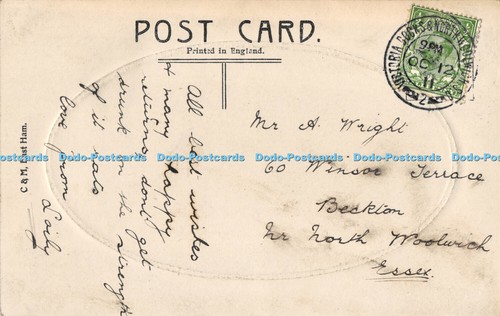 POST CARD.
Printed in England.
VICTORIA DOCKS & NORTH WOOLWICH
9 PM
OC 12
11
C & M, East Ham.
All best wishes
& many happy
returns don't get
drunk on the strength
of it
love from
Mr A. Wright
60 Winsor Terrace
Beckton
Nr North Woolwich
Essex.
Dodo-Postcards Dodo-Postcards Dodo-Postcards Dodo-Postcards Dodo-Postcards